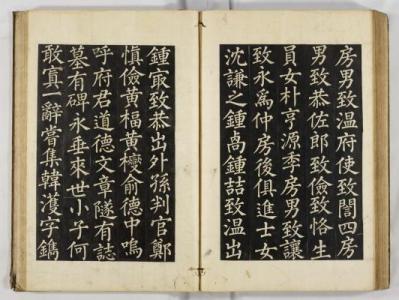 房男致温府使致誾四房
男致恭佐郎致儉致恪生
員女朴亨源季房男致讓
致永爲仲房後俱進士女
沈謙之鍾卨鍾喆致温出
鍾㝡致恭出外孫判官鄭
愼儉黄楅黄俞德中嗚
呼府君道德文章隧有誌
墓有碑永垂來世小子何
敢寘一辭嘗集韓濩字鐫